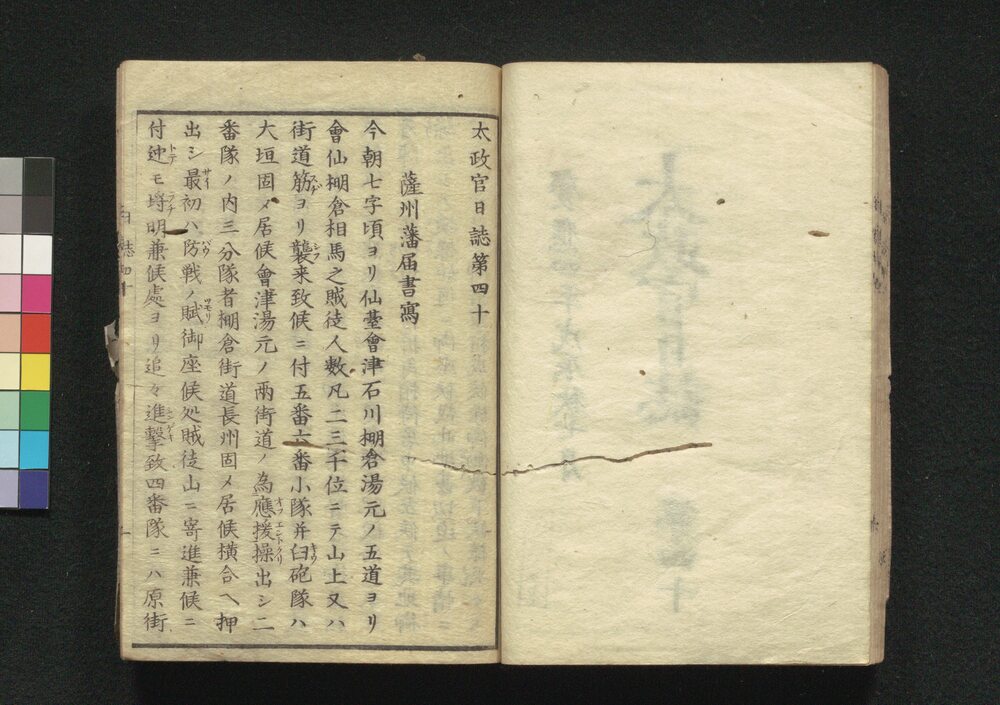 太政官日誌第四十
薩州藩届書寫
今朝七字頃ヨリ仙臺會津石川棚倉湯元ノ五道ヨリ
會仙棚倉相馬之賊徒人数凡二三千位ニテ山上又ハ
街道筋ヨリ襲来致候ニ付五番六番小隊并臼砲隊ハ
大垣固メ居候會津湯元ノ兩街道ノ為應援操出シ二
番隊ノ内三分隊者棚倉街道長州固メ居候横合ヘ押
出シ最初ハ防戦ノ賦御座候処賊徒山ニ寄進兼候ニ
付迚モ埒明兼候處ヨリ追々進撃致四番隊ニハ原街